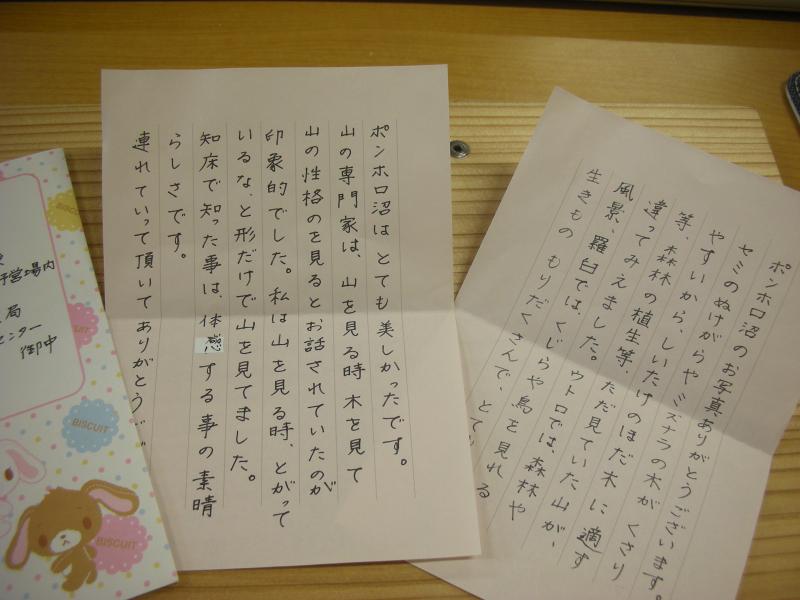 ポンホロ沼のお写真ありがとうございます。
セミのぬけがらやミズナラの木がくさり
やすいから、しいたけのほだ木に適す
等、森林の植生等、ただ見ていた山が、
違ってみえました。ウトロでは、森林や
風景、羅臼では、くじらや鳥を見れる
生きものもりだくさんで、とて
ポンホロ沼はとても美しかったです。
山の専門家は、山を見る時木を見て
山の性格のを見るとお話されていたのが
印象的でした。私は山を見る時、とがって
いるな、と形だけで山を見てました。
知床で知った事は、体感する事の素晴
らしさです。
連れていって頂いてありがとうご
営場内
局
センター
御中
BISCUIT
BISCUIT